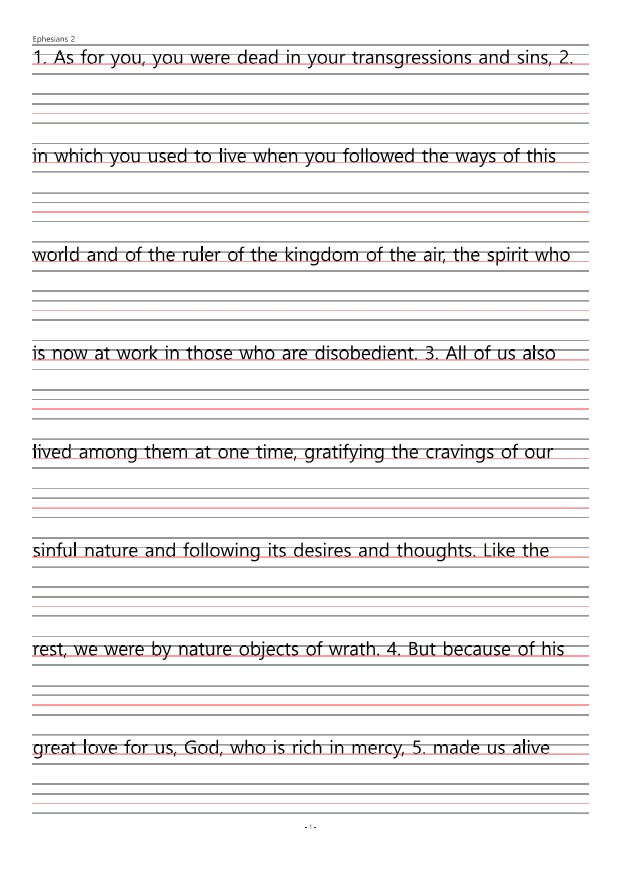 Ephesians 2
1. As for you, you were dead in your transgressions and sins, 2.
in which you used to live when you followed the ways of this
world and of the ruler of the kingdom of the air, the spirit who
is now at work in those who are disobedient. 3. All of us also
lived among them at one time, gratifying the cravings of our
sinful nature and following its desires and thoughts. Like the
rest, we were by nature objects of wrath. 4. But because of his
great love for us, God, who is rich in mercy, 5. made us alive
- 1 -